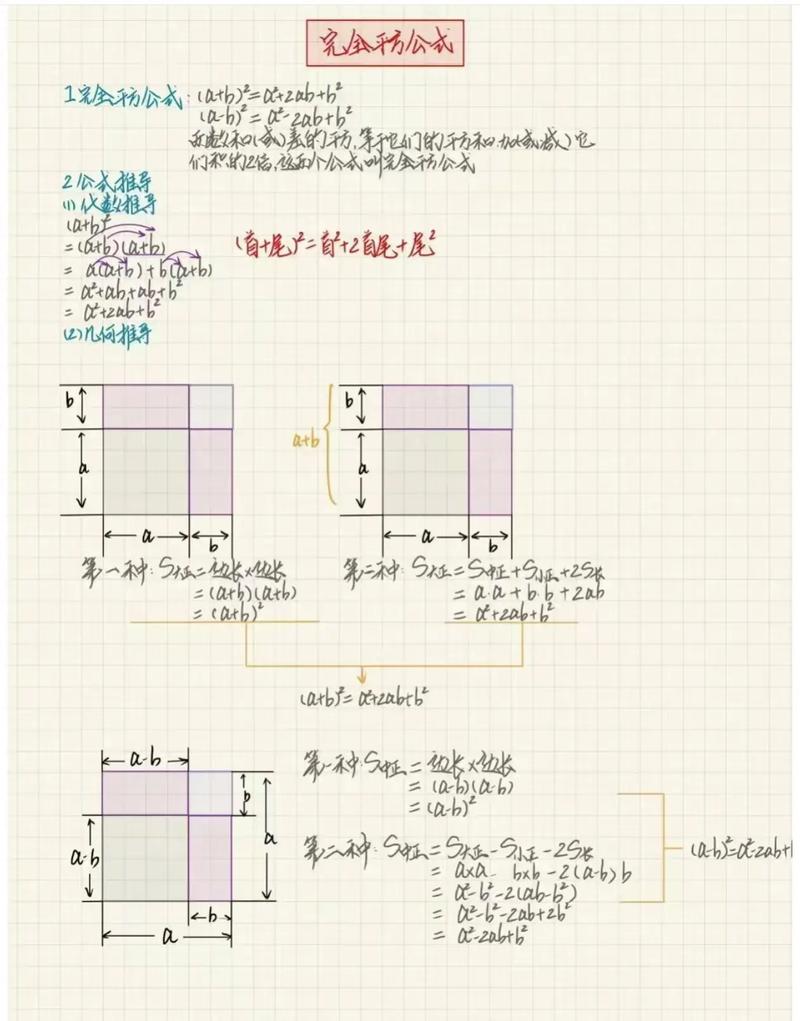 完全平方公式
1 完全平方公式: (a+b)²=a²+2ab+b²
(a-b)²=a²-2ab+b²
两数和(或)差的平方,等于它们的平方和,加(或减)它
们积的2倍,这两个公式叫完全平方公式
2 公式推导
(1) 代数推导
(a+b)²
=(a+b)(a+b)
= a(a+b)+b(a+b)
= a²+ab+ab+b²
= a²+2ab+b²
(首+尾)²=首²+2首尾+尾²
(2) 几何推导
b
a
a
b
a+b
b
a
a
b
第一种: S大正=边长×边长
=(a+b)(a+b)
=(a+b)²
第二种: S大正=S中正+S小正+2S长
= a·a+b·b+2ab
= a²+2ab+b²
(a+b)²=a²+2ab+b²
a-b
b
a
a-b
b
a
第一种: S中正=边长×边长
= (a-b)(a-b)
=(a-b)²
第二种: S中正=S大正-S小正-2S长
= a×a- b×b-2(a-b)b
= a²-b²-2(ab-b²)
= a²-b²-2ab+2b²
= a²-2ab+b²
(a-b)²=a²-2ab+